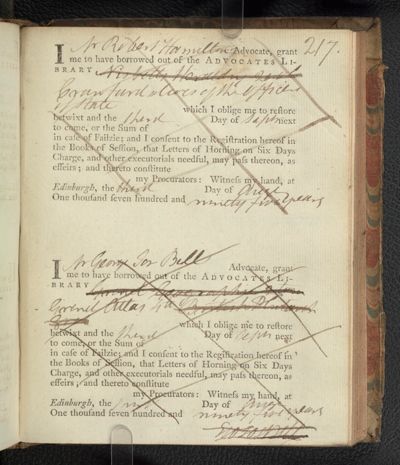 217.
I Mr Robert Hamilton Advocate, grant
me to have borrowed out of the ADVOCATES LI-
BRARY Nisbetts Heraldry and
Craufurds lives of the Officers
of State which I oblige me to restore
betwixt and the third Day of Septr next
to come, or the Sum of
in case of Failzie; and I consent to the Registration hereof in
the Books of Session, that Letters of Horning on Six Days
Charge, and other executorials needful, may pass thereon, as
effeirs; and thereto constitute
my Procurators: Witness my hand, at
Edinburgh, the third Day of Augt
One thousand seven hundred and ninety five years
I Mr George Jos Bell Advocate, grant
me to have borrowed out of the ADVOCATES LI-
BRARY
which I oblige me to restore
betwixt and the third Day of Septr next
to come, or the Sum of
in case of Failzie; and I consent to the Registration hereof in
the Books of Session, that Letters of Horning on Six Days
Charge, and other executorials needful, may pass thereon, as
effeirs; and thereto constitute
my Procurators: Witness my hand, at
Edinburgh, the Day of Augt
One thousand seven hundred and ninety five years